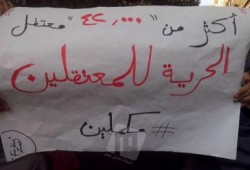 أكثر من "٤٢,٠٠٠" معتقل
الحرية للمعتقلين
# مكملين